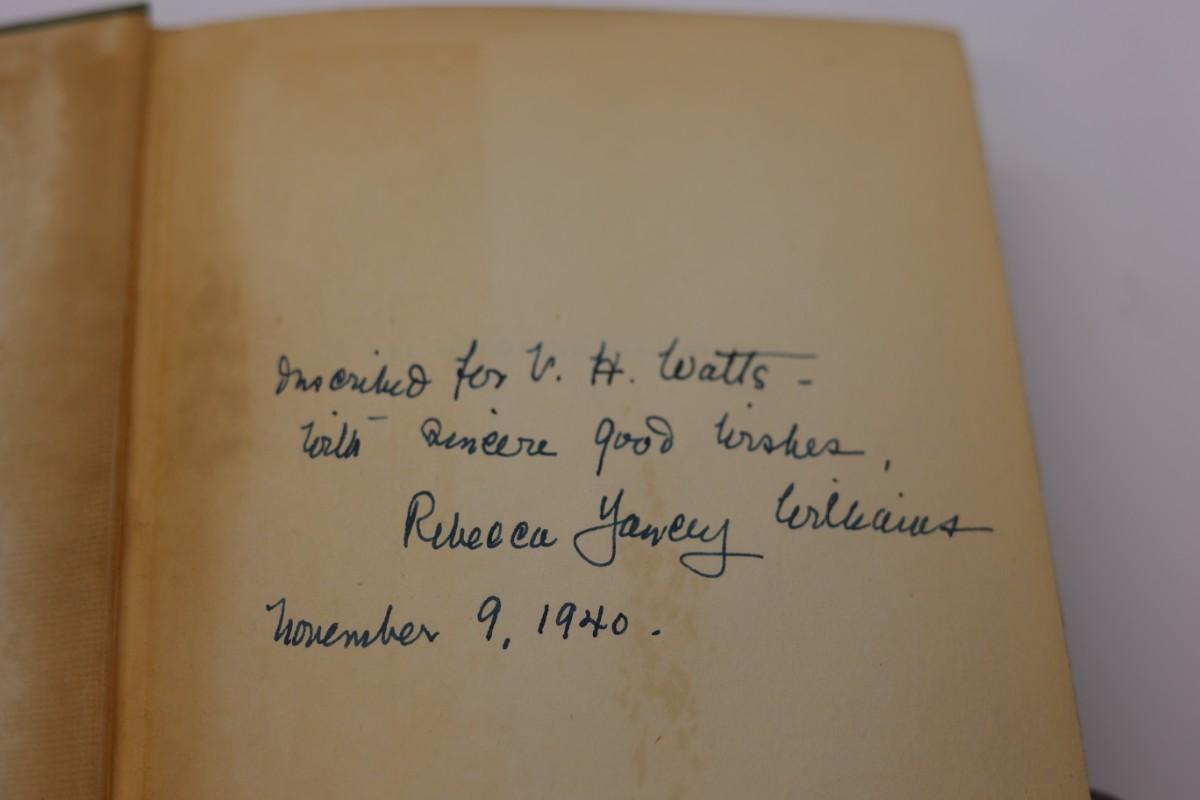 Inscribed for V. H. Watts -
with sincere good wishes,
Rebecca Yancey Williams
November 9, 1940.